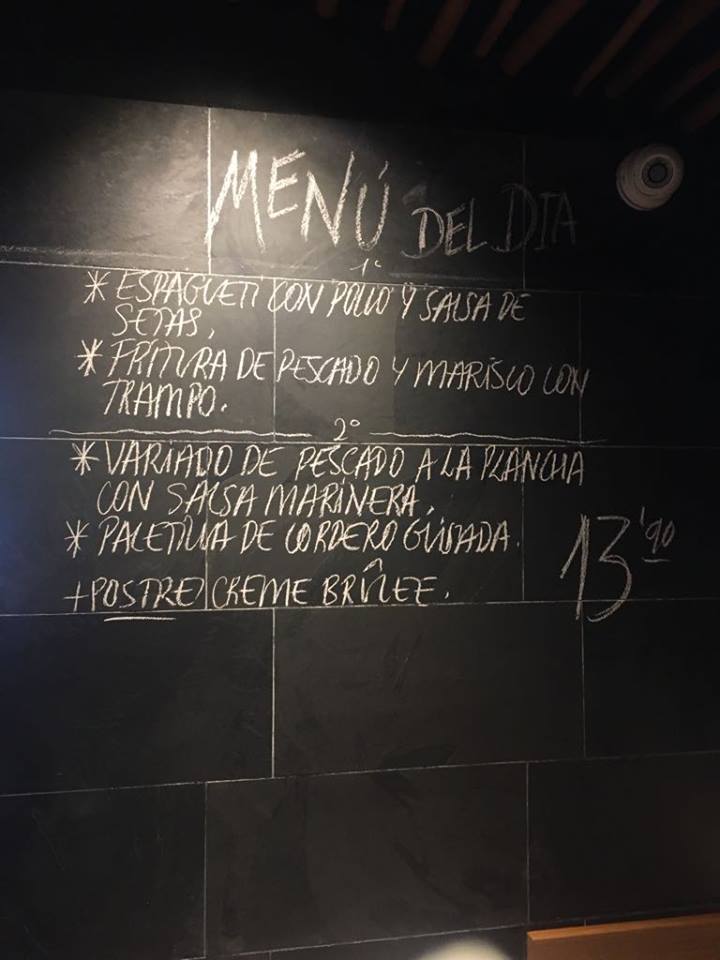 MENÚ DEL DIA
1º
* ESPAGUETI CON POLLO Y SALSA DE
SETAS,
* FRITURA DE PESCADO Y MARISCO CON
TRAMPO.
2º
* VARIADO DE PESCADO A LA PLANCHA
CON SALSA MARINERA,
* PALETILLA DE CORDERO GUISADA.
13'90
+POSTRE CREME BRÛLEE.